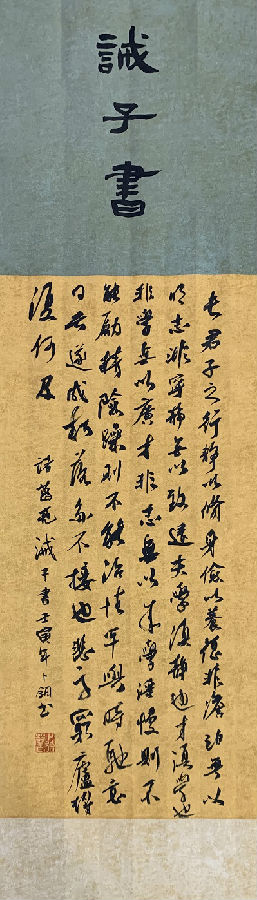 誡子書
夫君子之行静以脩身儉以養德非澹泊無以
明志非寧静無以致遠夫學須静也才須學也
非學無以廣才非志無以成學淫慢則不
能勵精險躁則不能治性年與時馳意
與日去遂成枯落多不接世悲守窮廬將
復何及
諸葛亮誡子書壬寅年